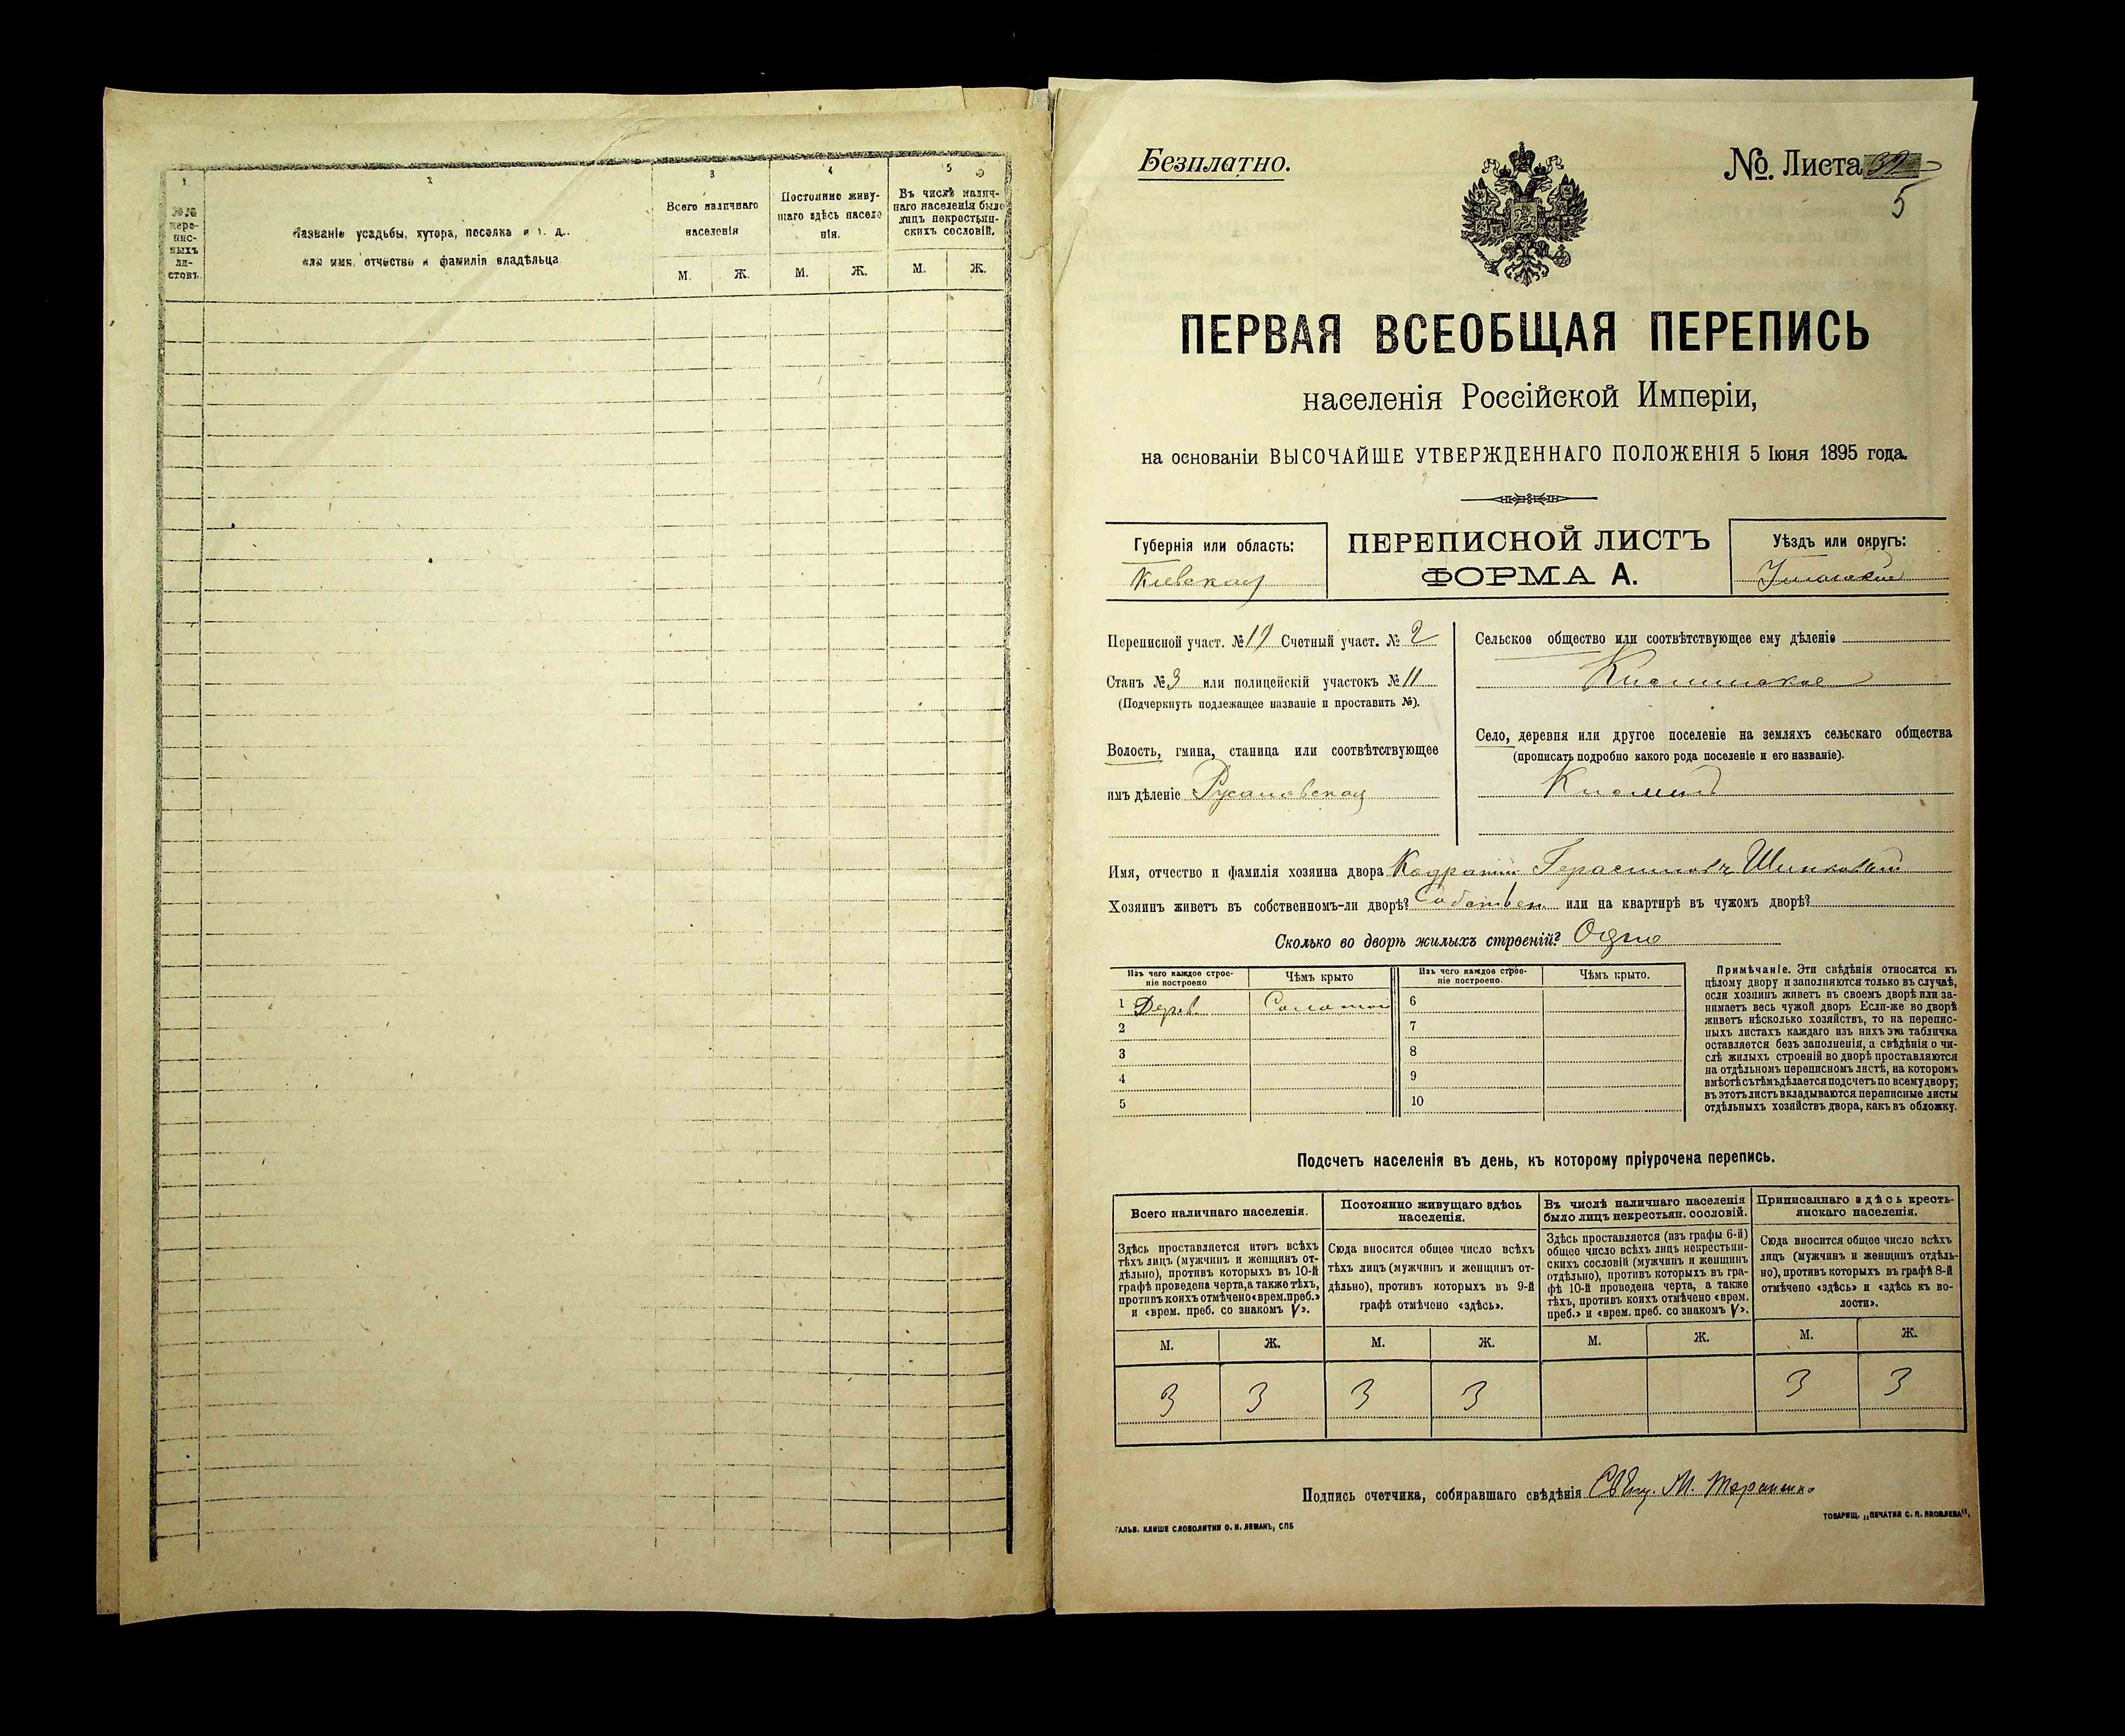 1
2
3
4
5
№№ пере-
пис-
ныхъ
ли-
стовъ.
Названіе усадьбы, хутора, поселка и т. д.
или имя, отчество и фамилія владѣльца
Всего наличнаго
населенія
Постоянно живу-
щаго здѣсь населе
нія.
Въ числѣ налич-
наго населенія было
лицъ некрестьян-
скихъ сословій.
М. Ж. М. Ж. М. Ж.
Безплатно.
№. Листа
5
ПЕРВАЯ ВСЕОБЩАЯ ПЕРЕПИСЬ
населенія Россійской Имперіи,
на основаніи ВЫСОЧАЙШЕ УТВЕРЖДЕННАГО ПОЛОЖЕНІЯ 5 Іюня 1895 года.
Губернія или область:
Кіевская
ПЕРЕПИСНОЙ ЛИСТЪ
ФОРМА А.
Уѣздъ или округъ:
Уманскій
Переписной участ. № Счетный участ. № 2
Станъ № 3 или полицейскій участокъ № 11
(Подчеркнуть подлежащее названіе и проставить №).
Волость, гмина, станица или соотвѣтствующее
имъ дѣленіе Русаловская
Сельское общество или соотвѣтствующее ему дѣленіе
Село, деревня или другое поселеніе на земляхъ сельскаго общества
(прописать подробно какого рода поселеніе и его названіе).
Имя, отчество и фамилія хозяина двора Кодратій Герасимовъ
Хозяинъ живетъ въ собственномъ-ли дворѣ? Собствен. или на квартирѣ въ чужомъ дворѣ?
Сколько во дворѣ жилыхъ строеній? Одно
Изъ чего каждое строе-
ніе построено
Чѣмъ крыто
Изъ чего каждое строе-
ніе построено.
Чѣмъ крыто.
1 Дерев. Соломой 6
2 7
3 8
4 9
5 10
Примѣчаніе. Эти свѣдѣнія относятся къ
цѣлому двору и заполняются только въ случаѣ,
если хозяинъ живетъ въ своемъ дворѣ или за-
нимаетъ весь чужой дворъ Если-же во дворѣ
живетъ нѣсколько хозяйствъ, то на перепис-
ныхъ листахъ каждаго изъ нихъ эта табличка
оставляется безъ заполненія, а свѣдѣнія о чи-
слѣ жилыхъ строеній во дворѣ проставляются
на отдѣльномъ переписномъ листѣ, на которомъ
вмѣстѣ съ тѣмъ дѣлается подсчетъ по всему двору;
въ этотъ листъ вкладываются переписные листы
отдѣльныхъ хозяйствъ двора, какъ въ обложку.
Подсчетъ населенія въ день, къ которому пріурочена перепись.
Всего наличнаго населенія.
Здѣсь проставляется итогъ всѣхъ
тѣхъ лицъ (мужчинъ и женщинъ от-
дѣльно), противъ которыхъ въ 10-й
графѣ проведена черта, а также тѣхъ,
противъ коихъ отмѣчено «врем. преб.»
и «врем. преб. со знакомъ V».
Постоянно живущаго здѣсь
населенія.
Сюда вносится общее число всѣхъ
тѣхъ лицъ (мужчинъ и женщинъ от-
дѣльно), противъ которыхъ въ 9-й
графѣ отмѣчено «здѣсь».
Въ числѣ наличнаго населенія
было лицъ некрестьян. сословій.
Здѣсь проставляется (изъ графы 6-й)
общее число всѣхъ лицъ некрестьян-
скихъ сословій (мужчинъ и женщинъ
отдѣльно), противъ которыхъ въ гра-
фѣ 10-й проведена черта, а также
тѣхъ, противъ коихъ отмѣчено «врем.
преб.» и «врем. преб. со знакомъ V».
Приписаннаго здѣсь кресть-
янскаго населенія.
Сюда вносится общее число всѣхъ
лицъ (мужчинъ и женщинъ отдѣль-
но), противъ которыхъ въ графѣ 8-й
отмѣчено «здѣсь» и «здѣсь къ во-
лости».
М. Ж. М. Ж. М. Ж. М. Ж.
3 3 3 3 3 3
Подпись счетчика, собиравшаго свѣдѣнія
ГАЛЬВ. КЛИШЕ СЛОВОЛИТНИ О. И. ЛЕМАНЪ, СПБ
ТОВАРИЩ. „ПЕЧАТНЯ С. П. ЯКОВЛЕВА“.